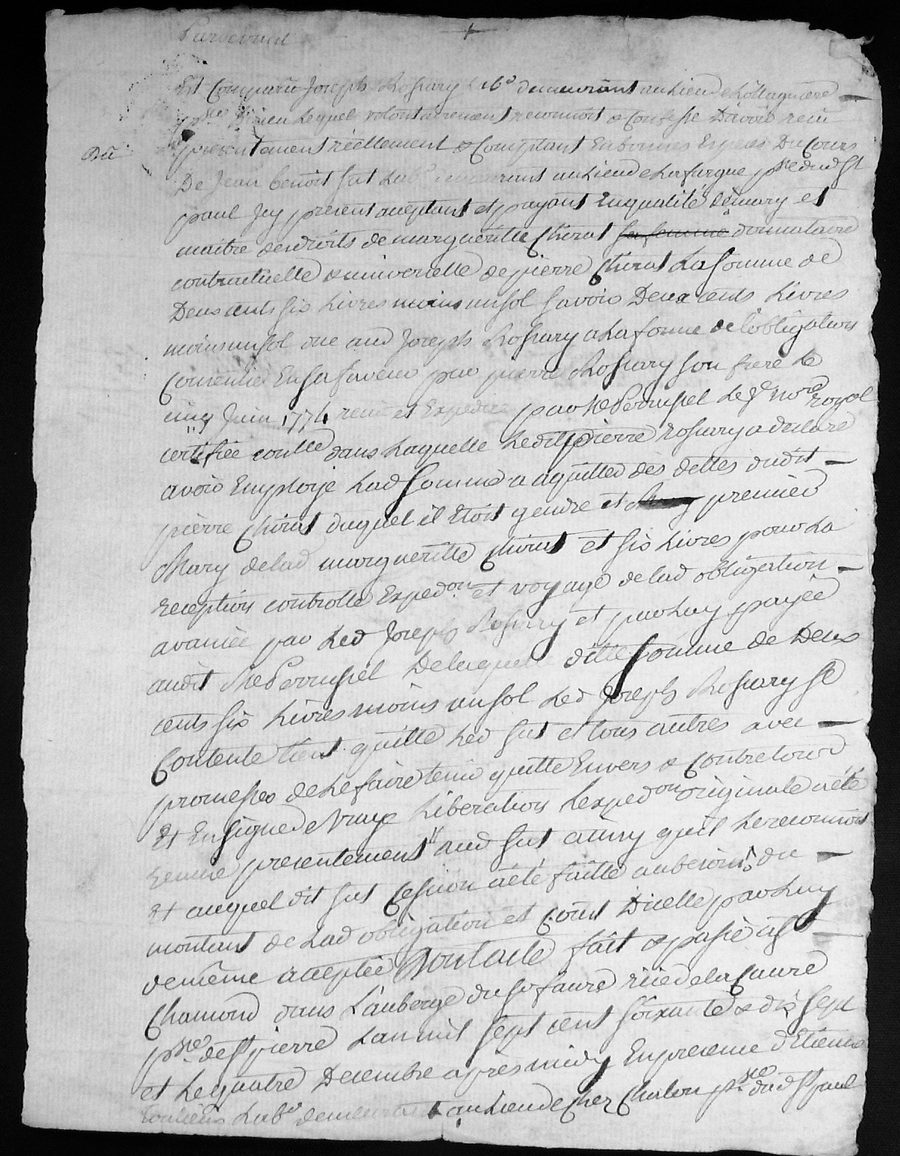 Pardevant
Est Comparu Joseph Rossary Lab.r demeurant au lieu de
lequel volontairement reconnoit & Confesse D'avoir reçu
Dud.
présentement réellement & Comptant En bonnes Espèces Du Cours
De Jean benoit fut Lab.r demeurant au lieu de Lafargue p.sse dud St
paul Jey présent acceptant et payant En qualité de mary et
maitre des droits de margueritte Chirat sa femme donnataire
contractuelle & universelle de pierre Chirat La somme de
Deux cents six Livres moins un sol savoir Deux cents Livres
moins un sol due aud Joseph Rossary a La forme de l'obligation
Consentie En sa faveur par pierre Rossary son frere Le
cinq Juin 1774 recu et Expediée par Me Perrussel Le J.e no.re royal
certifiée contlée dans Laquelle Ledit pierre rossary a declaré
avoir Employé Lad somme a aquitter des dettes dudit
pierre Chirat duquel il étoit gendre et premier
Mary de lad marguerite Chirat et six Livres pour La
reception controlle Exped.on et voyage de lad obligation
avancée par Led Joseph Rossary et par Luy payée
audit Me Perrussel De laquelle ditte somme de Deux
cents six Livres moins un sol Led Joseph Rossary se
Contente tient quitte Led fut et tous autres avec
promesses de Le faire tenir quitte Envers & Contre tous
Et En signe de vraye Libération L'exped.on originale a été
remise présentement aud fut ainsy qu'il Le reconnoit
Et auquel dit fut Cession a été faitte au besoin du
montant de Lad obligation et Cours D'icelle par Luy
de même acceptée Dont acte fait & passé à St
Chamond dans L'auberge du S.r faure rüe de la Cavre
p.sse de St pierre L'an mil sept cent soixante & dix sept
et Le quatre Decembre après midy En presence d'Etienne
Lab.r demeurant au lieu de Chez Chalon p.sse dud St paul